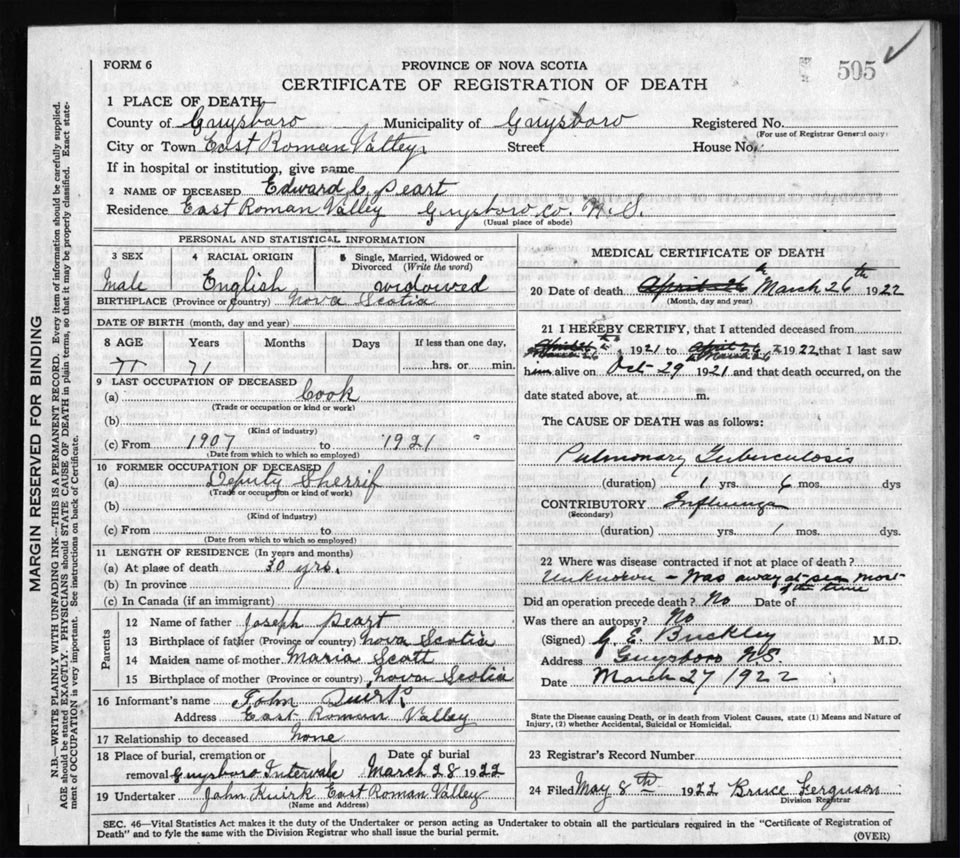 FORM 6
PROVINCE OF NOVA SCOTIA
595
CERTIFICATE OF REGISTRATION OF DEATH
1 PLACE OF DEATH
County of Guysboro Municipality of Guysboro Registered No.
(For use of Registrar General only)
City or Town East Roman Valley Street House No.
If in hospital or institution, give name
2 NAME OF DECEASED Edward C. Peart
Residence East Roman Valley Guysboro Co. N.S.
(Usual place of abode)
PERSONAL AND STATISTICAL INFORMATION
3 SEX 4 RACIAL ORIGIN 5 Single, Married, Widowed or
Divorced (Write the word)
Male English widowed
BIRTHPLACE (Province or country) Nova Scotia
DATE OF BIRTH (month, day and year)
8 AGE Years Months Days If less than one day,
71 hrs. or min.
9 LAST OCCUPATION OF DECEASED
(a) Cook
(Trade or occupation or kind or work)
(b)
(Kind of industry)
(c) From 1907 to 1921 "
(Date from which to which so employed)
10 FORMER OCCUPATION OF DECEASED
(a) Deputy Sherrif
(Trade or occupation or kind of work)
(b)
(Kind of industry)
(c) From to
(Date from which to which so employed)
11 LENGTH OF RESIDENCE (In years and months)
(a) At place of death 30 yrs.
(b) In province
(c) In Canada (if an immigrant)
Parents
12 Name of father Joseph Peart
13 Birthplace of father (Province or country) Nova Scotia
14 Maiden name of mother Maria Scott
15 Birthplace of mother (Province or country) Nova Scotia
16 Informant's name John Quirk
Address East Roman Valley
17 Relationship to deceased none
18 Place of burial, cremation or Date of burial
removal Guysboro Intervale March 28 1922
19 Undertaker John Kuirk East Roman Valley
(Name and Address)
MEDICAL CERTIFICATE OF DEATH
20 Date of death April 26th March 26th 1922
(Month, day and year)
21 I HEREBY CERTIFY, that I attended deceased from
March 26 1921 to April 26 March 26 1922 that I last saw
him alive on Oct 29 1921 and that death occurred, on the
date stated above, at m.
The CAUSE OF DEATH was as follows:
Pulmonary Tuberculosis
(duration) 1 yrs. 6 mos. dys
CONTRIBUTORY Influenza
(Secondary)
(duration) yrs. 1 mos. dys.
22 Where was disease contracted if not at place of death?
Unknown - Was away at sea most
of the time
Did an operation precede death? No Date of
Was there an autopsy? No
(Signed) G. E. Buckley M.D.
Address Guysboro N.S.
Date March 27 1922
State the Disease causing Death, or in death from Violent Causes, state (1) Means and Nature of
Injury, (2) whether Accidental, Suicidal or Homicidal.
23 Registrar's Record Number
24 Filed May 8th 1922 Bruce Ferguson
Division Registrar
SEC. 46—Vital Statistics Act makes it the duty of the Undertaker or person acting as Undertaker to obtain all the particulars required in the "Certificate of Registration of
Death" and to fyle the same with the Division Registrar who shall issue the burial permit.
(OVER)
MARGIN RESERVED FOR BINDING
N.B.—WRITE PLAINLY WITH UNFADING INK—THIS IS A PERMANENT RECORD. Every item of information should be carefully supplied.
AGE should be stated EXACTLY. PHYSICIANS should STATE CAUSE OF DEATH in plain terms, so that it may be properly classified. Exact state-
ment of OCCUPATION is very important. See instructions on back of Certificate.